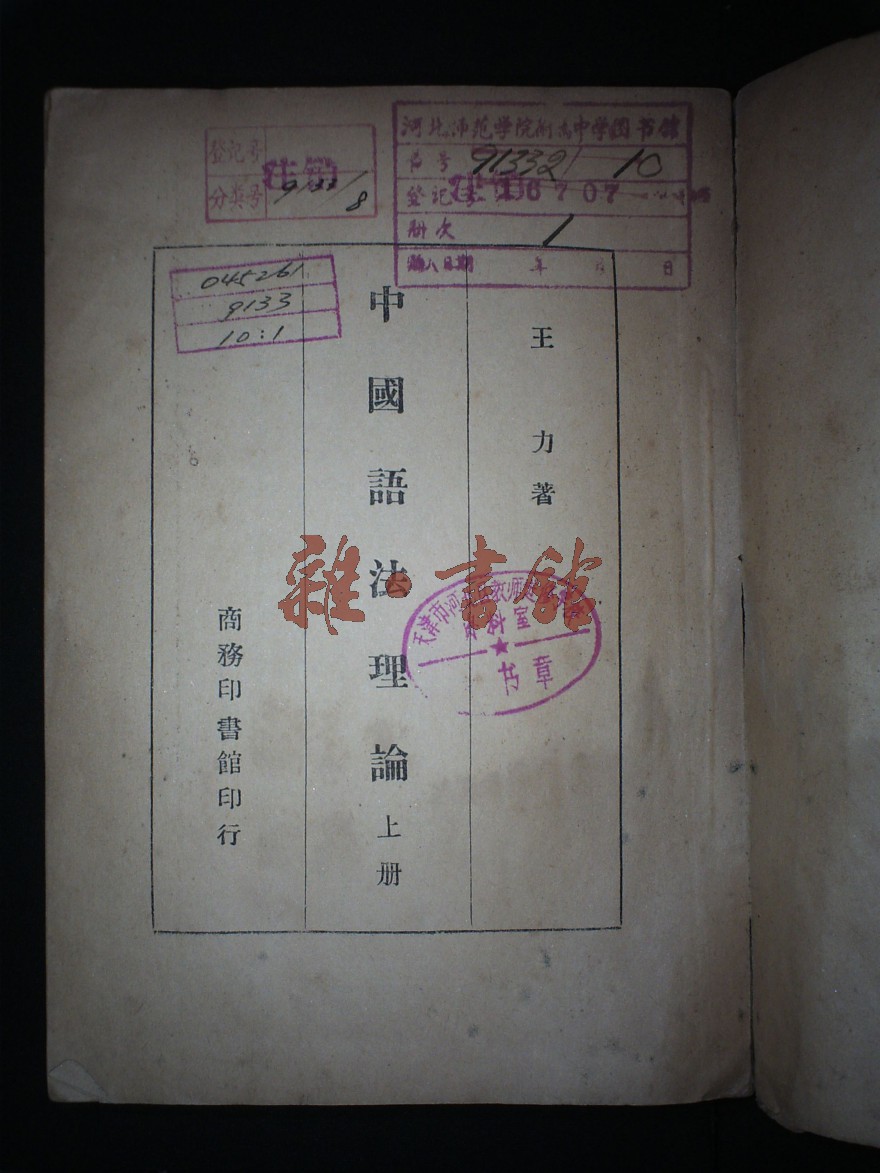 河北师范学院附高中学图书馆
书号 91332/ 10
登记号 注销 6707
册次 1
购入日期 年 月 日
登记号 注销
分类号 9133/8
045261
9133
10:1
王力著
中國語法理論上册
商務印書館印行
雜·書館
天津市河
科室
★
书章